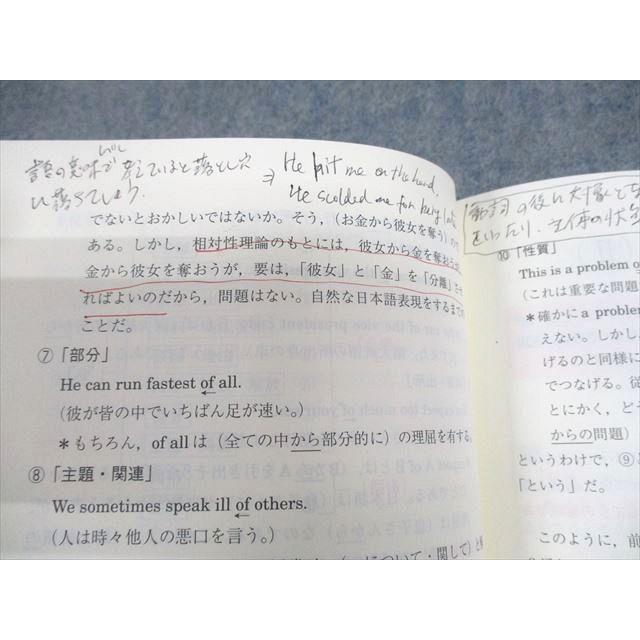 語の意味で考えていると落とし穴
に落ちてしまう.
⇒ He hit me on the head.
He scolded me for being late
でないとおかしいではないか。そう，（お金から彼女を奪う）の
ある。しかし，相対性理論のもとには，彼女から金を奪おうが
金から彼女を奪おうが，要は，「彼女」と「金」を「分離」させ
ればよいのだから，問題はない。自然な日本語表現をするまでの
ことだ。
⑦「部分」
He can run fastest of all.
（彼が皆の中でいちばん足が速い。）
＊もちろん，of all は（全ての中から部分的に）の理屈を有する。
⑧「主題・関連」
We sometimes speak ill of others.
（人は時々他人の悪口を言う。）
について・関して）と
動詞の後に対象と
⑩「性質」
This is a problem o
（これは重要な問題
＊確かに a problem
えない。しかし
げるのと同様に
でつなげる。従
とにかく，ど
からの問題）
というわけで，⑨と
「という」だ。
このように，前